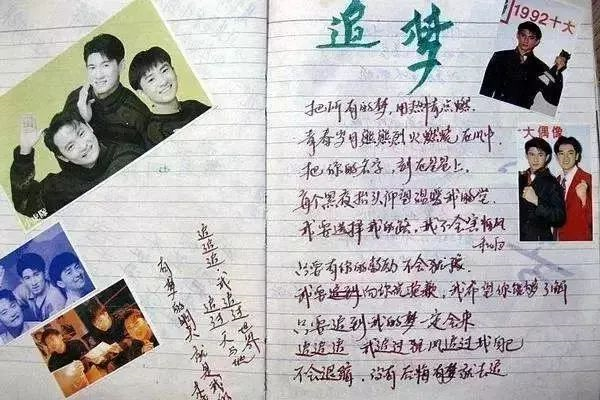 追梦
把所有的梦,用热情点燃
青春岁月熊熊烈火燃烧在心中
把你的名字,刻在星星上
每个黑夜抬头仰望温暖我的心
我要选择我的路,我不会害怕风
和雨
只要有你的鼓励不会孤寂
我要追到
向你说抱歉,我希望你能够了解
只要追到我的梦一定会来
追追追 我追过狂风追过我自己
不会退缩,没有后悔有梦就去追
追追追,我追过
追过天与地
世界
有梦的明天就是我的
1992十大
大偶像